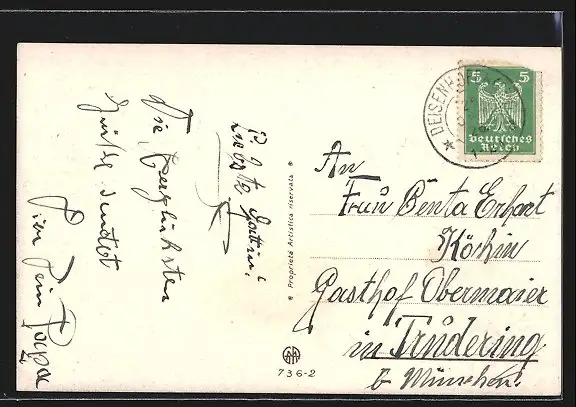 Liebste Gattin!
Die herzlichsten
Grüße sendet
Dir Dein Papa
* Proprietà Artistica riservata *
736-2
DEISENH
5 5
Deutsches
Reich
An
Frau Benta Erhart
Köchin
Gasthof Obermaier
in Trudering
b München